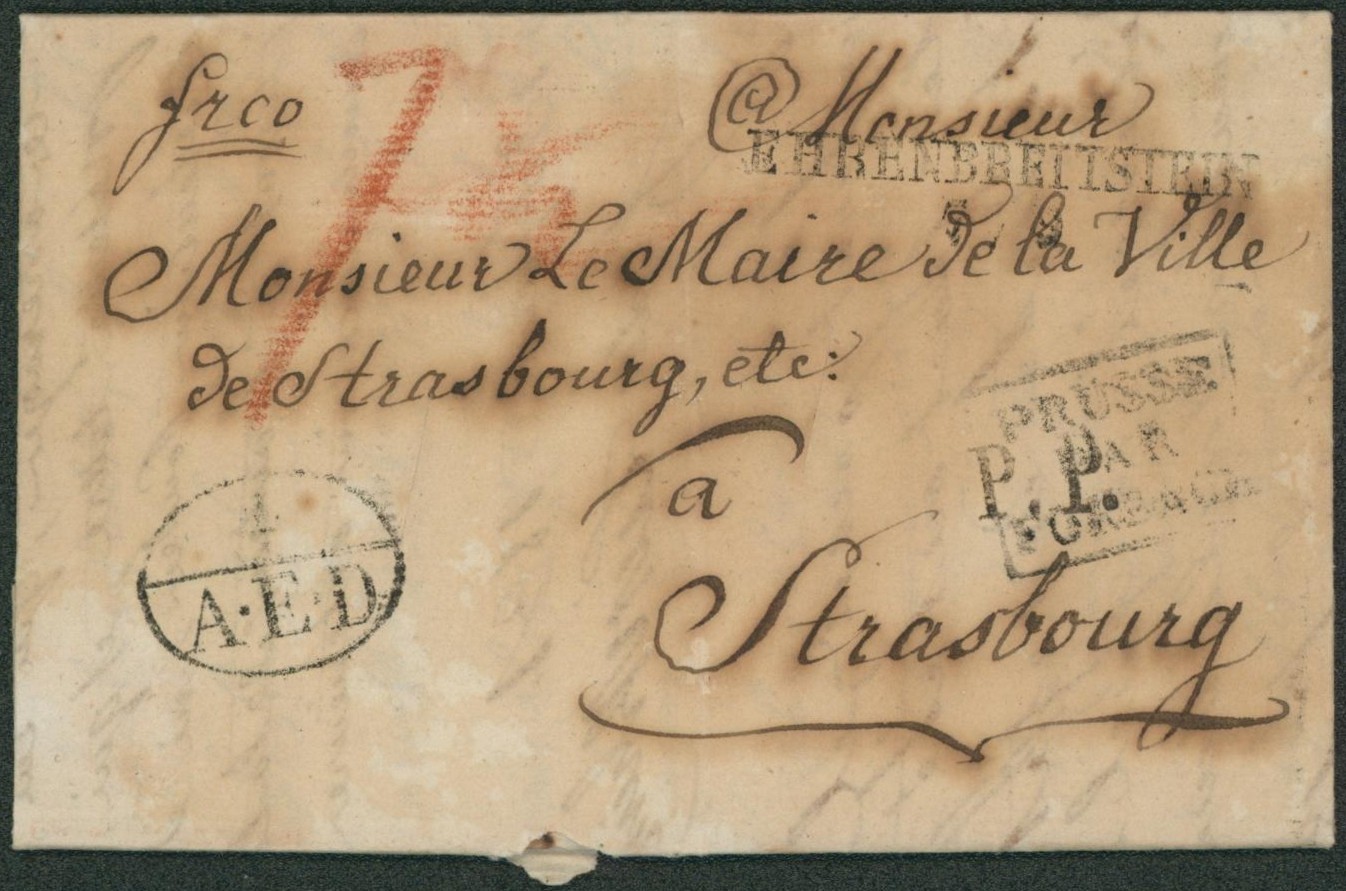 frco
a Monsieur
EHRENBREITSTEIN
Monsieur Le Maire de la Ville
de Strasbourg, etc:
a
Strasbourg
PRUSSE
PAR
FORBACH
P.P.
1.
A.E.D.
7